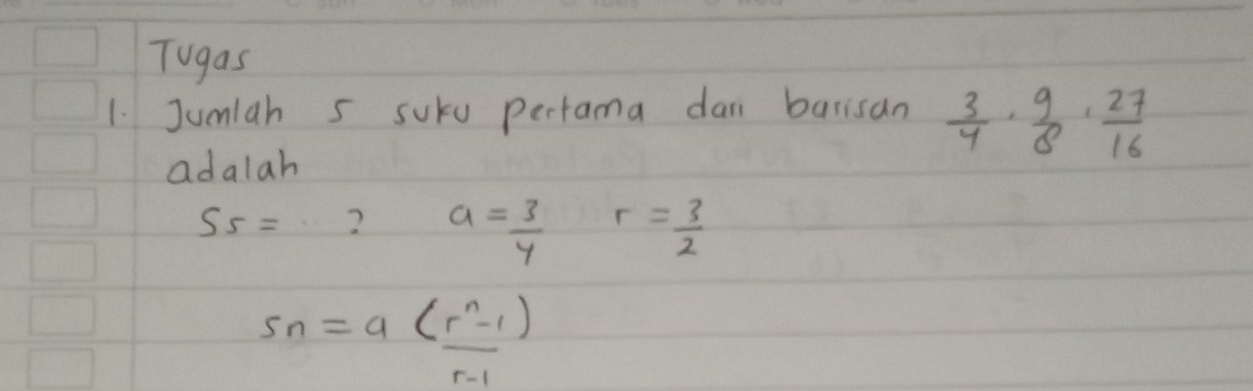 Tugas
1. Jumlah 5 suku pertama dari barisan 3/4, 9/8, 27/16
adalah
S5 = ... ? a = 3/4 r = 3/2
Sn = a (r^n - 1) / r-1